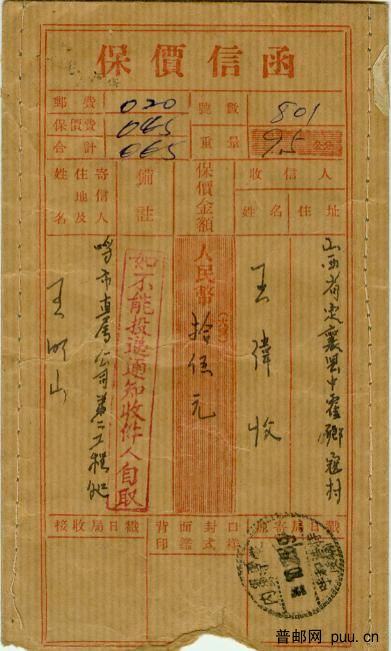 保價信函
號數 801
重量 95 公分
郵費 020
保價費 045
合計 065
收信人
姓名 住址
山西省定襄县中霍鄉 村
王偉收
保價金額
人民幣 拾伍元
備註
如不能投遞通知收件人自取
寄信人
姓名 住地及
市直属公司第二工程处
王明山
接收局日戳
背面封口
印鑑式樣
原寄局日戳
普邮网 puu.cn